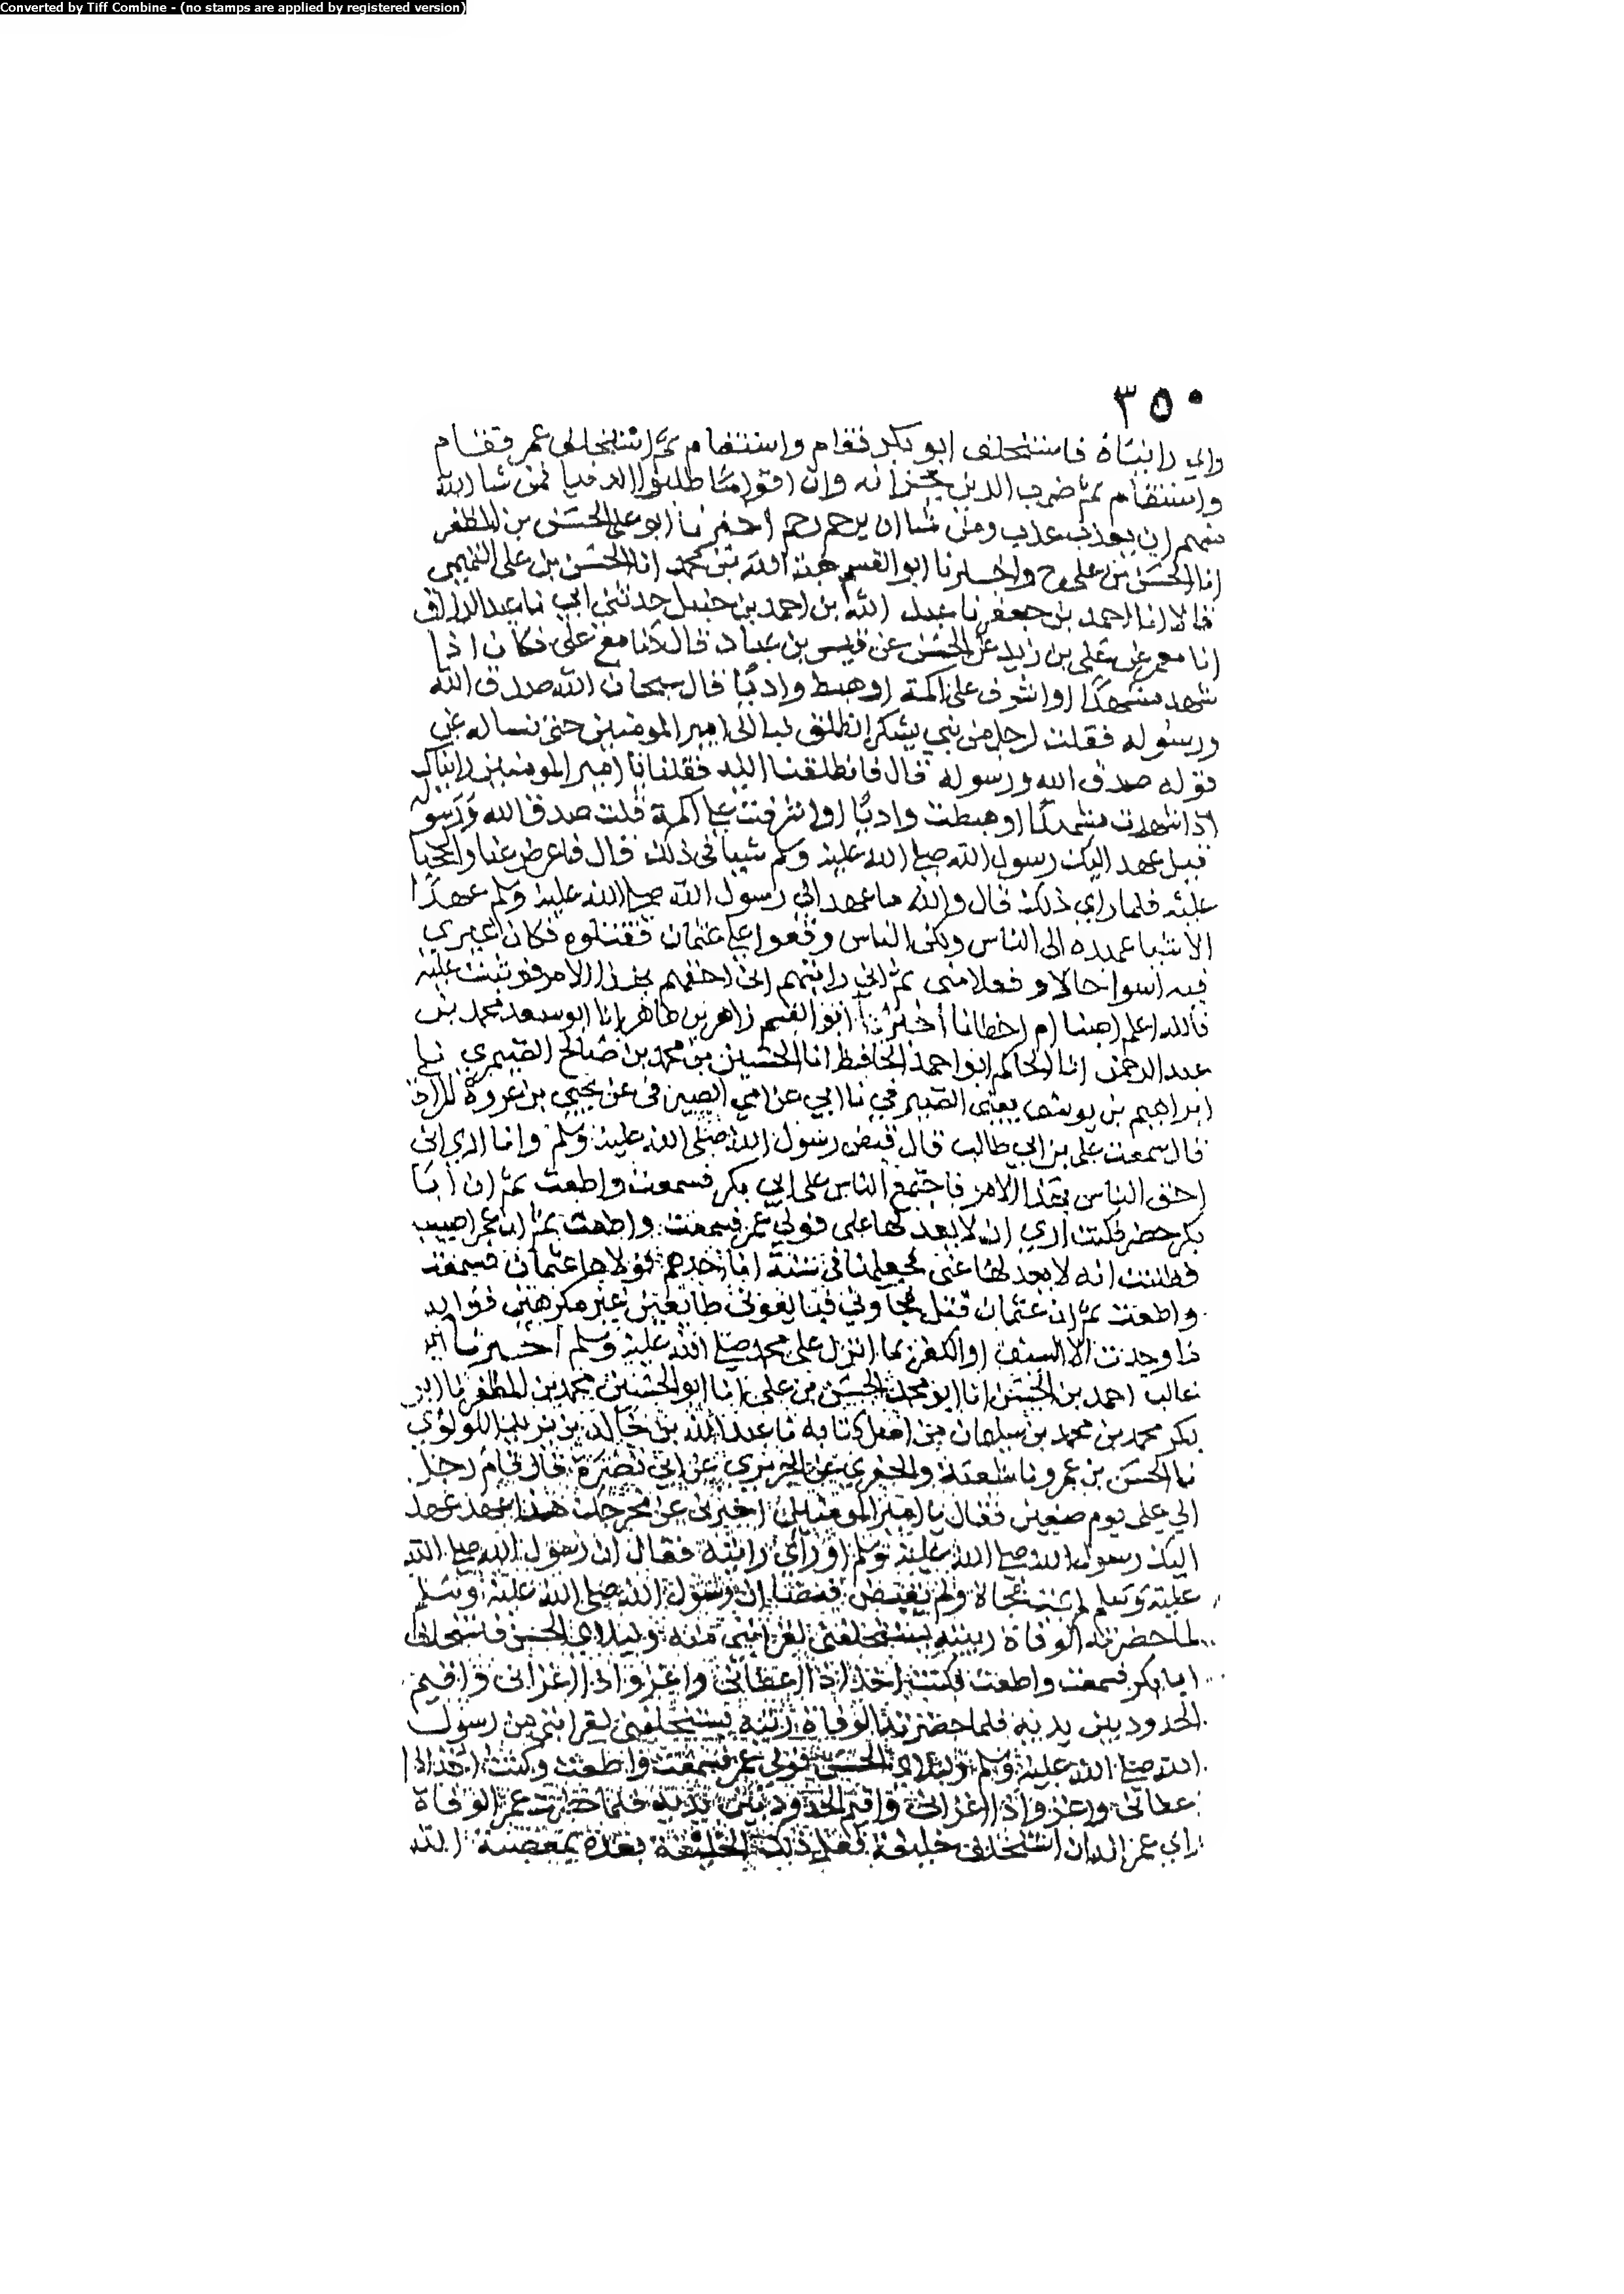 Converted by Tiff Combine - (no stamps are applied by registered version)
٣٥٠
راي رايناه فاستخلف ابو بكر فقام واستقام ثم استخلف عمر فقام
واستقام ثم ضرب الدين بجرانه وان اقواما طلبوا الدنيا فمن شا الله
منهم ان يعذب عذب ومن شا ان يرحم رحم اخبرنا ابو علي الحسن بن المظفر
انا الحسن بن علي ح واخبرنا ابو القسم هبة الله بن محمد انا الحسن بن علي التميمي
قالا انا احمد بن جعفر نا عبد الله بن احمد بن حنبل حدثني ابي نا عبد الرزاق
انا معمر عن علي بن زيد عن الحسن عن قيس بن عباد قال كنا مع علي فكان اذا
شهد مشهدا او اشرف على اكمة او هبط واديا قال سبحان الله صدق الله
ورسوله فقلت لرجل من بني يشكر انطلق بنا الى امير المومنين حتى نساله عن
قوله صدق الله ورسوله قال فانطلقنا اليه فقلنا يا امير المومنين رايناك
اذا شهدت مشهدا او هبطت واديا او اشرفت على اكمة قلت صدق الله ورسوله
فهل عهد اليك رسول الله صلى الله عليه وسلم شيا في ذلك قال فاعرض عنا والححنا
عليه فلما راي ذلك قال والله ما عهد الي رسول الله صلى الله عليه وسلم عهدا
الا شيا عهده الى الناس ولكن الناس وقعوا على عثمان فقتلوه فكان غيري
فيه اسوا حالا وفعلا مني ثم اني رايت اني احقهم بهذا الامر فوثبت عليه
فالله اعلم اصبنا ام اخطانا اخبرنا ابو القسم زاهر بن طاهر انا ابو سعد محمد بن
عبد الرحمن انا الحاكم ابو احمد الحافظ انا الحسين بن محمد بن صالح الصيمري نا
ابراهيم بن يوسف يعني الصيرفي نا ابي عن الصيرفي عن يحيى بن عروة المرادي
قال سمعت علي بن ابي طالب قال قبض رسول الله صلى الله عليه وسلم وانا اري اني
احق الناس بهذا الامر فاجتمع الناس على ابي بكر فسمعت واطعت ثم ان ابا
بكر حضر فكنت اري ان لا يعدلها على فولي عمر فسمعت واطعت ثم ان عمر اصيب
فظننت انه لا يعدلها عني فجعلها في ستة انا احدهم فولاها عثمان فسمعت
واطعت ثم ان عثمان قتل فجاوني فبايعوني طايعين غير مكرهين فوالله
ما وجدت الا السيف او الكفر بما انزل على محمد صلى الله عليه وسلم اخبرنا ابو
غالب احمد بن الحسن انا ابو محمد الحسن بن علي انا ابو الحسين محمد بن المظفر نا ابو
بكر محمد بن محمد بن سليمان من اصل كتابه نا عبد الله بن خالد بن يزيد اللولوي
نا الحسن بن عمرو نا شعبة عن الجريري عن ابي نضرة قال قام رجل
الي علي يوم صفين فقال يا امير المومنين اخبرني عن مخرجك هذا عهد عهد
اليك رسول الله صلى الله عليه وسلم او راي رايته فقال ان رسول الله صلى الله
عليه وسلم لم يمت فجاة ولم يقبض ان رسول الله صلى الله عليه وسلم
لما حضرته الوفاة يستخلفني لقرابتي منه وبلاي الحسن فاستخلف
ابا بكر فسمعت واطعت فكنت اخذ اذا اعطاني واغزو اذا اغزاني واقيم
الحدود بين يديه فلما حضرته الوفاة يستخلفني لقرابتي من رسول
الله صلى الله عليه وسلم وبلاي الحسن فولي عمر فسمعت واطعت وكنت اخذ اذا
عطاني واغزو اذا اغزاني واقيم الحدود بين يديه فلما حضرت عمر الوفاة
راي عمر انه ان استخلف خليفة فعمل ذلك الخليفة بعده بمعصية الله